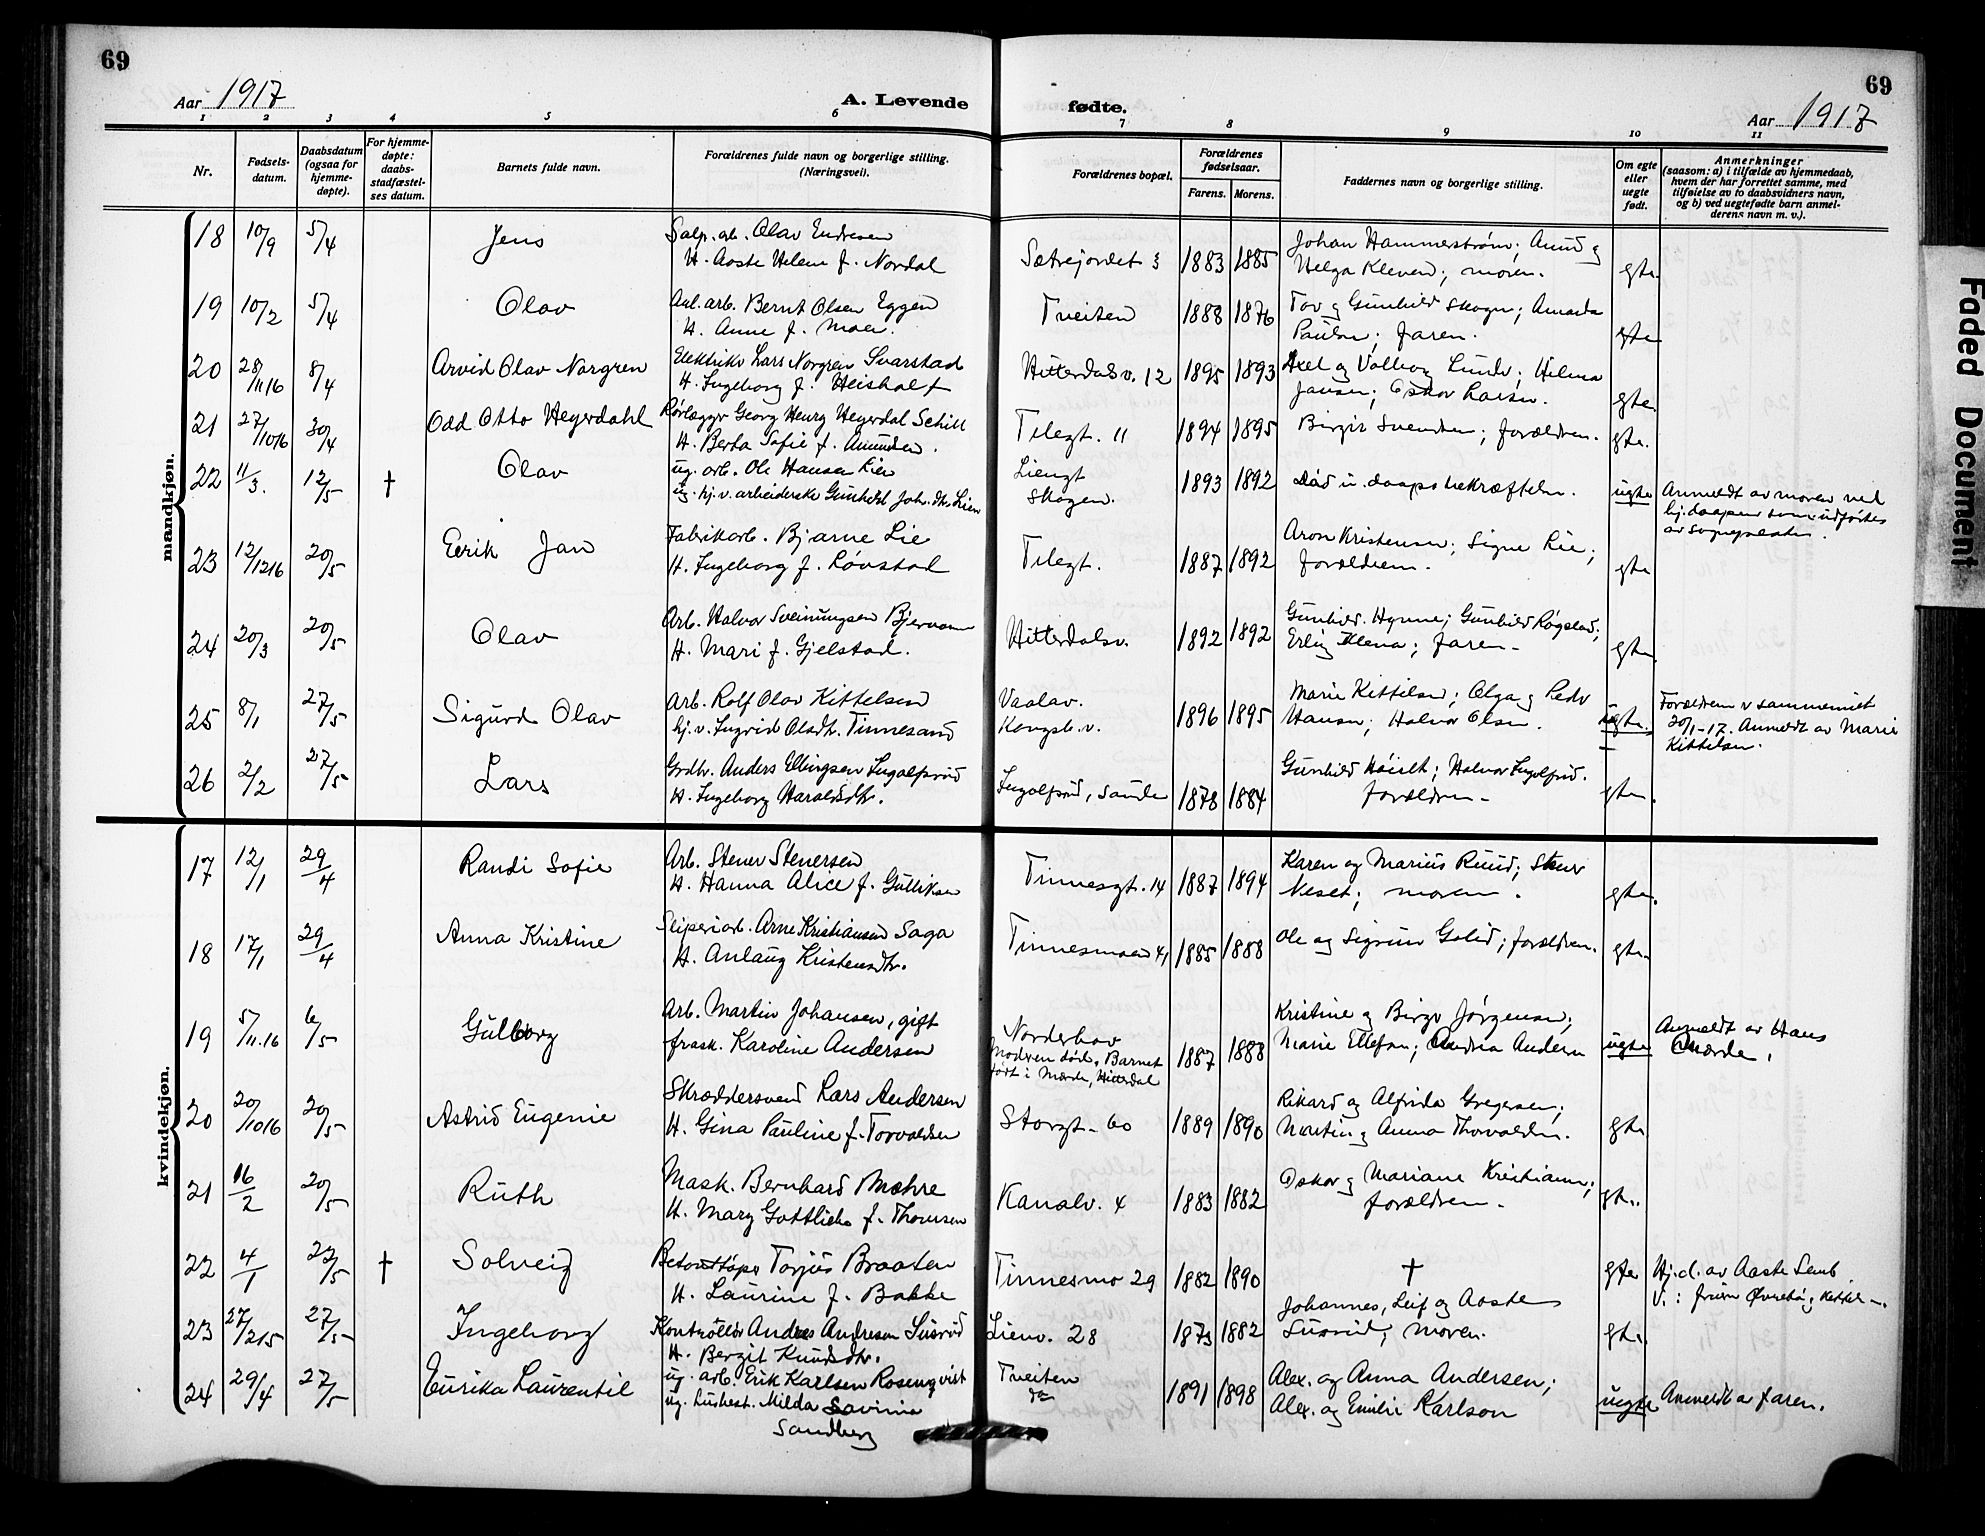 69
69
Aar 1917
A. Levende fødte.
Aar 1917
1 2 3 4 5 6 7 8 9 10 11
Nr.
Fødsels-
datum.
Daabsdatum
(ogsaa for
hjemme-
døpte).
For hjemme-
døpte:
daabs-
stadfæstel-
ses datum.
Barnets fulde navn.
Forældrenes fulde navn og borgerlige stilling.
(Næringsvei).
Forældrenes bopæl.
Forældrenes
fødselsaar.
Farens. Morens.
Faddernes navn og borgerlige stilling.
Om egte
eller
uegte
født.
Anmerkninger
(saasom: a) i tilfælde av hjemmedaab,
hvem der har forrettet samme, med
tilføielse av to daabsvidners navn,
og b) ved uegtefødte barn anmel-
derens navn m. v.).
mandkjøn.
18 10/9 5/4 Jens Salp. arb. Olav Endresen
H. Aaste Helene f. Nordal
Sætrejordet 3 1883 1885 Johan Hammerstrøm; Amund og
Helga Kleven; moren. gte.
19 10/2 5/4 Olav Anl. arb. Bernt Olsen Eggen
H. Anne f. Moen.
Tveiten 1888 1876 Tov og Gunhild Skogen; Amanda
Paulsen; faren. gte
20 28/11 16 8/4 Arvid Olav Norgren Elektriker Lars Norgren Svarstad
H. Ingeborg f. Heisholt
Hitterdalsv. 12 1895 1893 Axel og Valborg Lunde; Hilma
Jansen; Oskar Larsen. gte.
21 27/10 16 30/4 Odd Otto Heyerdahl Rørlægger Georg Henry Heyerdal Schill
H. Berta Sofie f. Amundsen.
Telegt. 11 1894 1895 Birgit Svendsen; forældren. gte.
22 11/3. 12/5 † Olav ug. arb. Ole Hansen Lien
ug. hj. v. arbeiderske Gunhild Joh. dtr. Lien
Liengt
Skogen. 1893 1892 Død u. daapsbekræftelse. ugte Anmeldt av moren ved
hj. daapen som utførtes
av sognepresten.
23 12/12 16 20/5 Eerik Jan Fabrikarb. Bjarne Lie
H. Ingeborg f. Løvstad
Telegt. 1887 1892 Aron Kristensen; Signe Lie;
forældrene. gte
24 20/3 20/5 Olav Arb. Halvor Sveinungsen Bjervamoen
H. Mari f. Gjelstad.
Hitterdalsv. 1892 1892 Gunhild Hynne; Gunhild Rogstad;
Erling Klena; faren. gte.
25 8/1 27/5 Sigurd Olav Arb. Rolf Olav Kittelsen
hj. v. Ingrid Olsdtr. Tinnesand
Vaalav.
Kongsb.v. 1896 1895 Marie Kittilsen; Olga og Peder
Hansen; Halvor Olsen. ugte. Forældrene v sammenviet
20/1-17. Anmeldt av Marie
Kittelsen.
26 2/2 27/5 Lars Grdbr. Anders Ellingsen Ingolfsrud
H. Ingeborg Haraldsdtr.
Ingolfsrud, Sande 1878 1884 Gunhild Høiset; Halvor Ingolfsrud.
forældren. gte.
kvindekjøn.
17 12/1 29/4 Randi Sofie Arb. Stener Stenersen
H. Hanna Alice f. Gulliksen
Tinnesgt. 14 1887 1894 Karen og Marius Ruud; Stener
Neset; moren. gte.
18 17/1 29/4 Anna Kristine Sliperiarb. Arne Kristiansen Saga
H. Anlaug Kristensdtr.
Tinnesmoen 41 1885 1888 Ole og Sigrun Golid; forældren. gte.
19 5/11.16 6/5 Gulborg Arb. Martin Johansen, gift
frask. Karoline Andersen
Norderhov
Modren død. Barnet
født i Mærde, Hitterdal 1887 1888 Kristine og Birger Jørgensen;
Marie Ellefsen; Andrea Andersen ugte Anmeldt av Hans
Mærde.
20 20/10 16 20/5 Astrid Eugenie Skræddersvend Lars Andersen
H. Gina Pauline f. Torvaldsen
Storgt. 60 1889 1890 Rikard og Alfrida Gregersen;
Martin og Anna Thorvaldsen. gte
21 16/2 20/5 Ruth Mask. Bernhard Mæhre
H. Mary Gottliebe f. Thomsen
Kanalv. 4 1883 1882 Oskar og Mariane Kristiansen;
forældren. gte.
22 4/1 22/5 † Solveig Betonstøper Torjus Braaten
H. Laurine f. Bakke
Tinnesmo 29 1882 1890 † gte Hj. d. av Aaste Semb
V.:
23 27/2 15 27/5 Ingeborg Kontrollør Andres Andresen Susrud
H. Bergit Knudsdtr.
Lienv. 28 1873 1882 Johannes, Leif og Aaste
Susrud; moren. gte.
24 29/4 27/5 Eurika Laurentil ug. arb. Erik Karlsen Rosenqvist
ug. husbest. Milda Savinia
Sandberg
Tveiten
do 1891 1898 Alex. og Anna Andersen;
Alex. og Emilie Karlson ugte Anmeldt av faren.
Faded Document